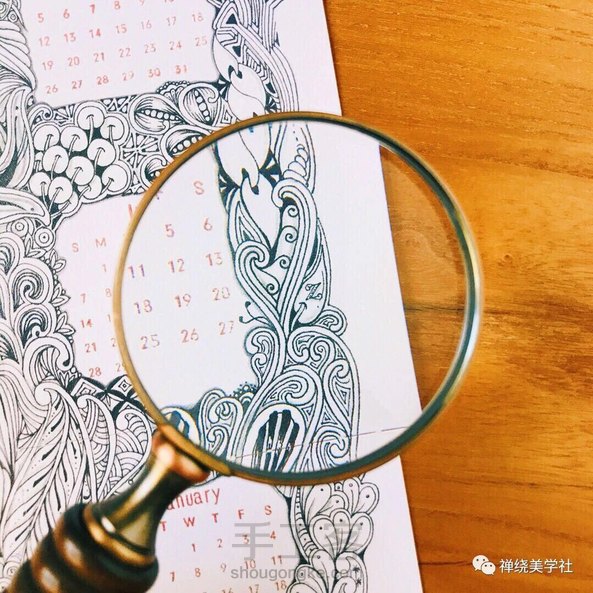 5 6 7 8 9
12 13 14 15 16 17 18
19 20 21 22 23 24 25
26 27 28 29 30 31
S M S
5 6
7 8 11 12 13
14 18 19 20
21 22 25 26 27
28
anuary
T W T F S
1 2 3 4
7 8 9 10 11
手工客
shougongke.com
禅绕美学社